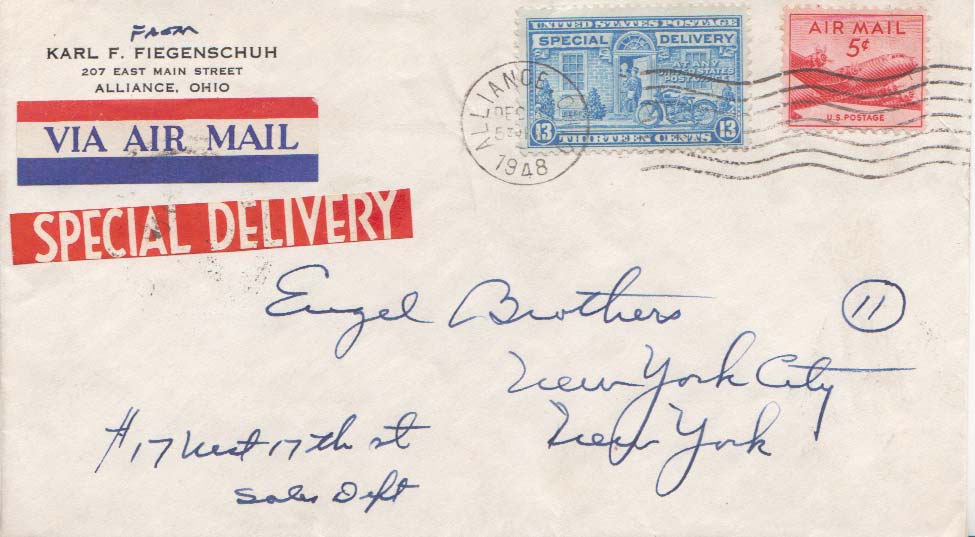 From
KARL F. FIEGENSCHUH
207 EAST MAIN STREET
ALLIANCE, OHIO
VIA AIR MAIL
SPECIAL DELIVERY
UNITED STATES POSTAGE
SPECIAL DELIVERY
AT ANY
UNITED STATES
POST OFFICE
13 THIRTEEN CENTS 13
AIR MAIL
5¢
U.S. POSTAGE
ALLIANCE
DEC
1948
Engel Brothers
11
New York City
New York
#17 West 17th st
Sales Dept